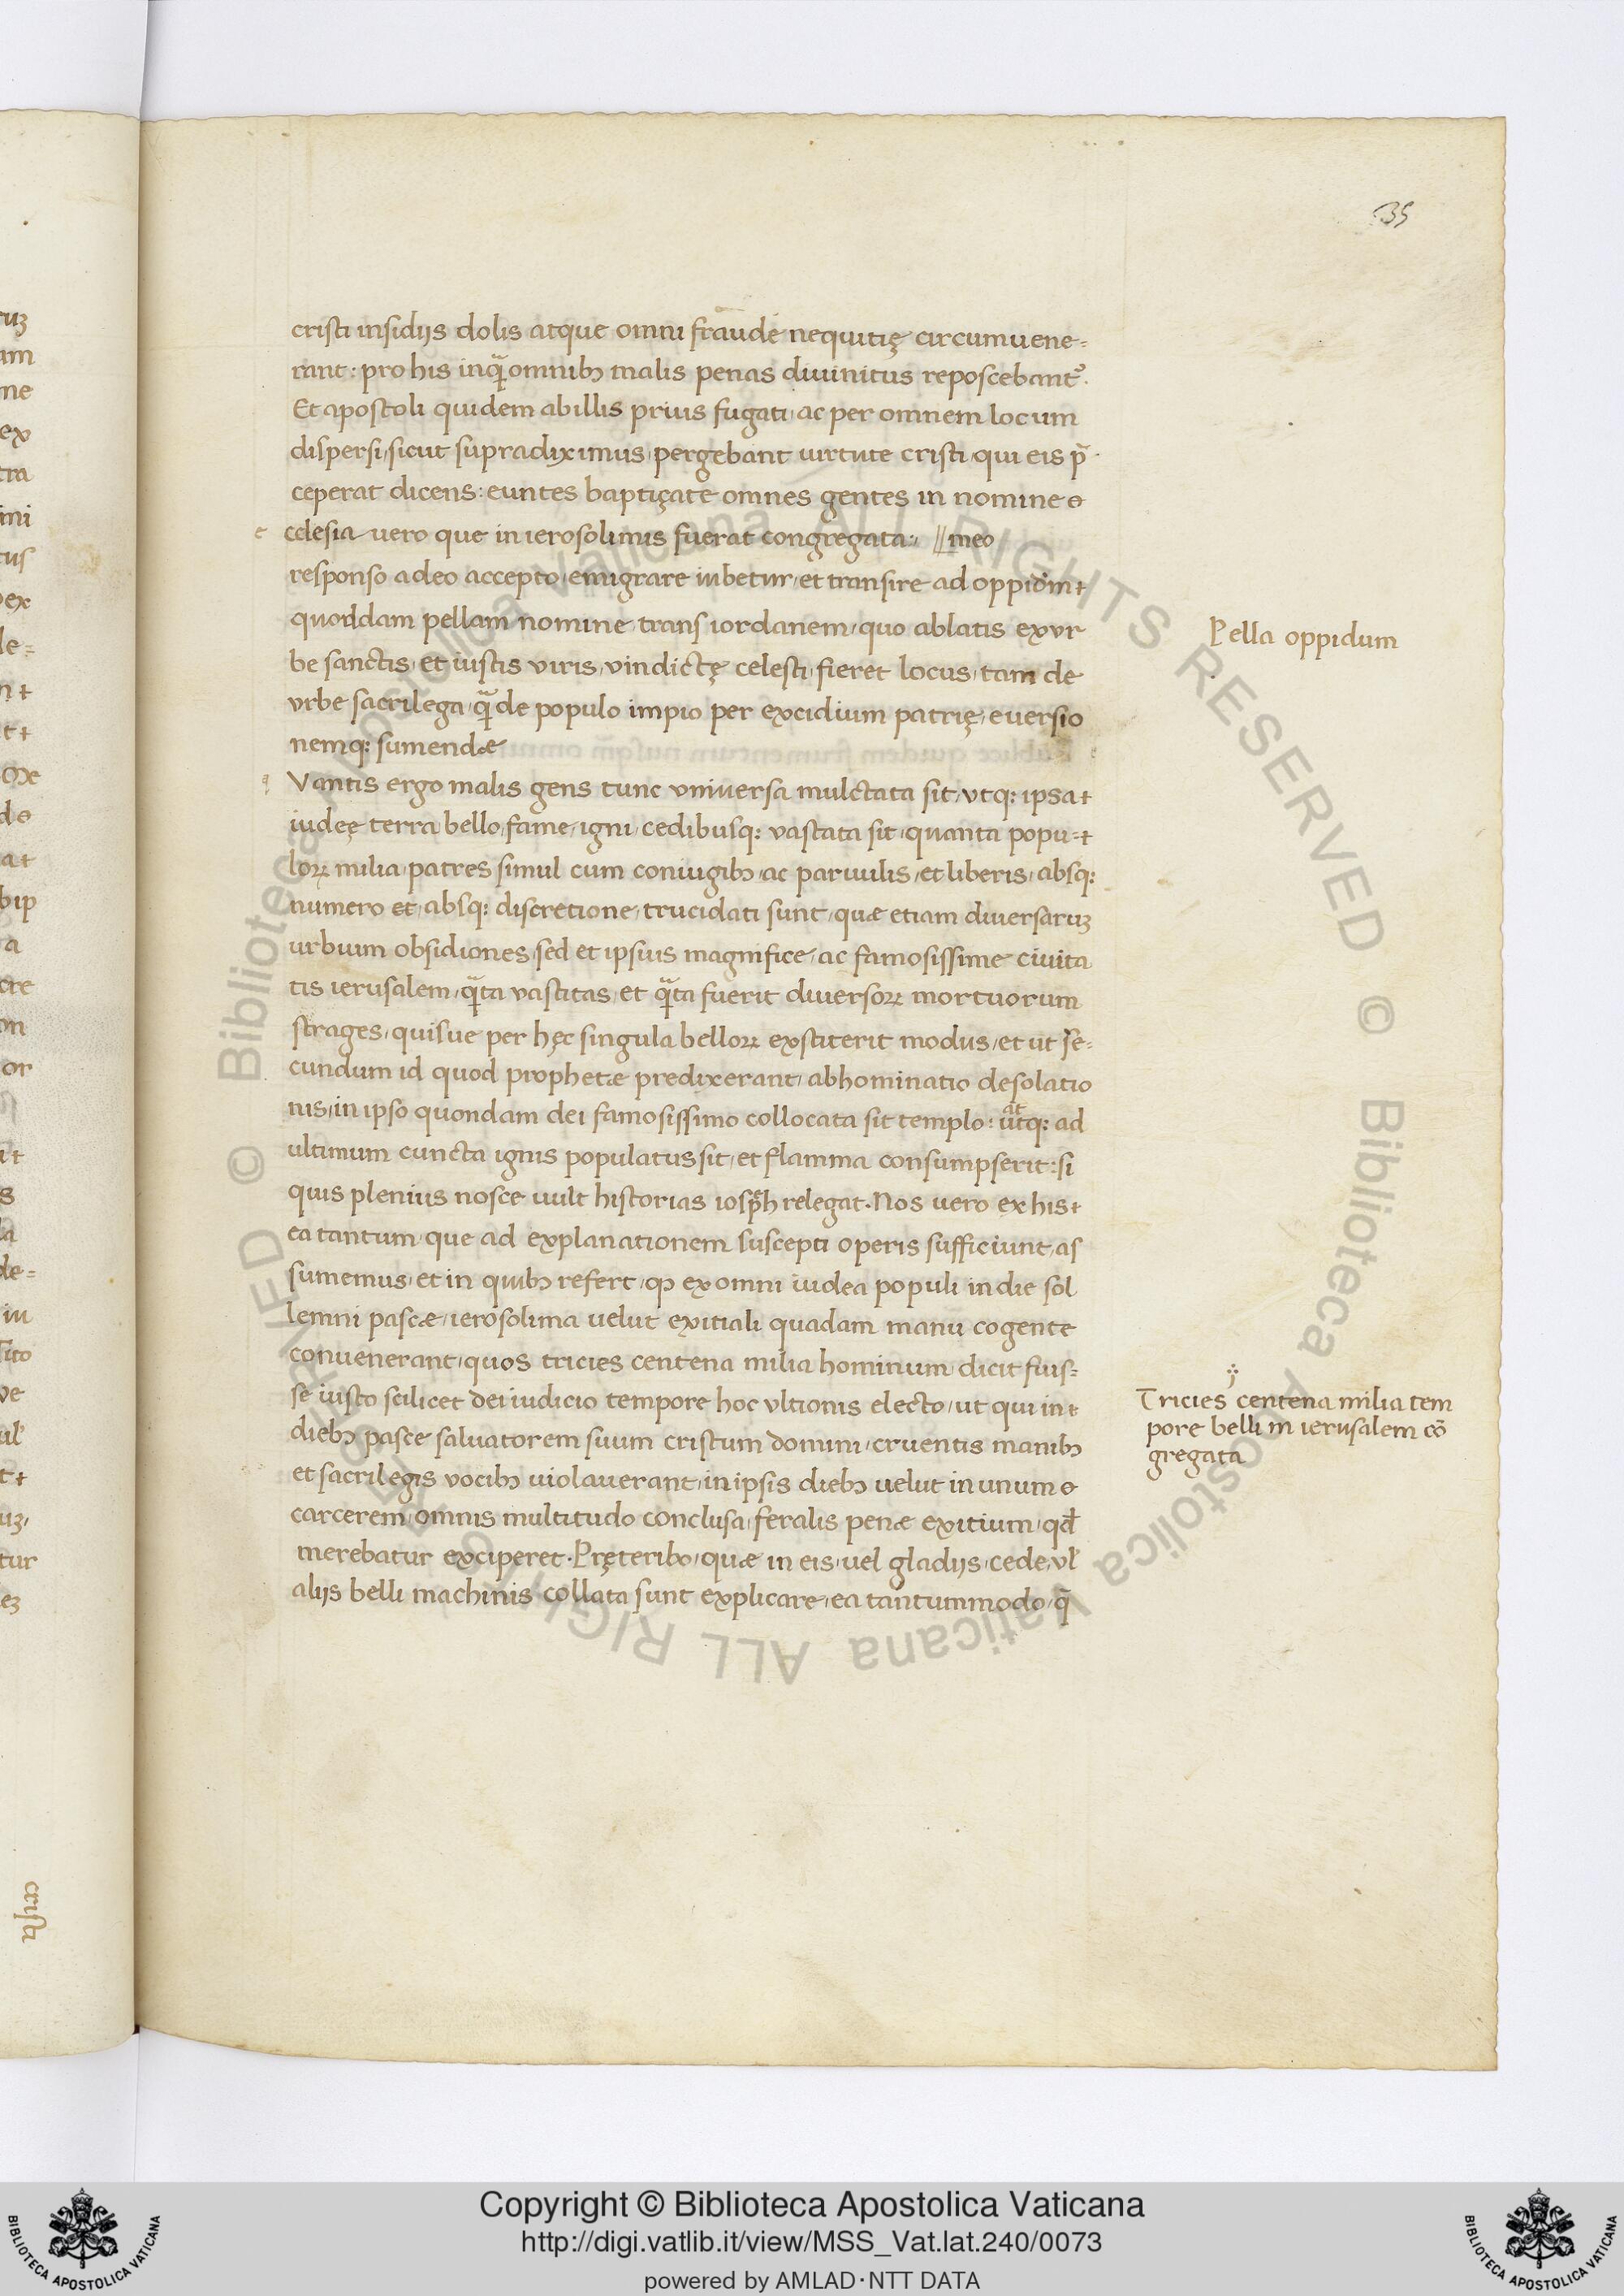 35
cristi insidijs dolis atque omni fraude nequitię circumuene=
rant: pro his inqͣ omnibꝫ malis penas diuinitus reposcebant᷒.
Et apostoli quidem ab illis prius fugati, ac per omnem locum
dispersi, sicut supra diximus, pergebant uirtute cristi, qui eis p̄
ceperat dicens: euntes baptiçate omnes gentes in nomine
e celesia uero que in ierosolimis fuerat congregata: // meo
responso a deo accepto, emigrare iubetur, et transire ad oppidm̄
quoddam pellam nomine, trans iordanem, quo ablatis ex vr
be sanctis, et iustis viris, vindictę celesti, fieret locus, tam de
vrbe sacrilega, qͣ de populo impio per excidium patrię, euersio
nemqꝫ sumendæ
q Vantis ergo malis gens tunc vniuersa mulctata sit, vtqꝫ ipsa
iudeę terra bello, fame, igni, cedibusqꝫ vastata sit, quanta popu=
loꝝ milia, patres simul cum coniugibꝫ, ac paruulis, et liberis, absqꝫ
numero et, absqꝫ discretione, trucidati sunt, quæ etiam diuersaruꝫ
urbium obsidiones, sed et ipsius magnifice, ac famosissime ciuita
tis ierusalem, qͣta vastitas, et qͣta fuerit diuersoꝝ mortuorum
strages, quisue per hęc singula belloꝝ exstiterit modus, et ut se=
cundum id quod prophetæ predixerant, abhominatio desolatio
nis, in ipso quondam dei famosissimo collocata sit templo: utqꝫ ad
ultimum cuncta ignis populatus sit, et flamma consumpserit: si
quis plenius nosce uult historias iosp̄h relegat. Nos uero ex his
ea tantum, que ad explanationem suscepti operis sufficiunt, as
sumemus, et in quibꝫ refert, ꝙ ex omni iudea populi in die sol
lemni pascæ, ierosolima uelut exitiali quadam manu cogente
conuenerant, quos tricies centena milia hominum, dicit fuis=
se iusto scilicet dei iudicio tempore hoc vltionis electo, ut qui in
diebꝫ pasce saluatorem suum cristum domini, cruentis manibꝫ
et sacrilegis vocibꝫ uiolauerant, in ipsis diebꝫ uelut in unum
carcerem, omnis multitudo conclusa, feralis penæ exitium, qd̄
merebatur exciperet. Pręteribo, quæ in eis, uel gladijs, cede, vl̄
alijs belli machinis collata sunt explicare, ea tantummodo, q̄
Pella oppidum
Tricies centena milia tem
pore belli in ierusalem cō
gregata
Copyright © Biblioteca Apostolica Vaticana
http://digi.vatlib.it/view/MSS_Vat.lat.240/0073
powered by AMLAD·NTT DATA
BIBLIOTECA APOSTOLICA VATICANA
BIBLIOTECA APOSTOLICA VATICANA
© Biblioteca Apostolica Vaticana ALL RIGHTS RESERVED © Biblioteca Apostolica Vaticana ALL RIGHTS RESERVED